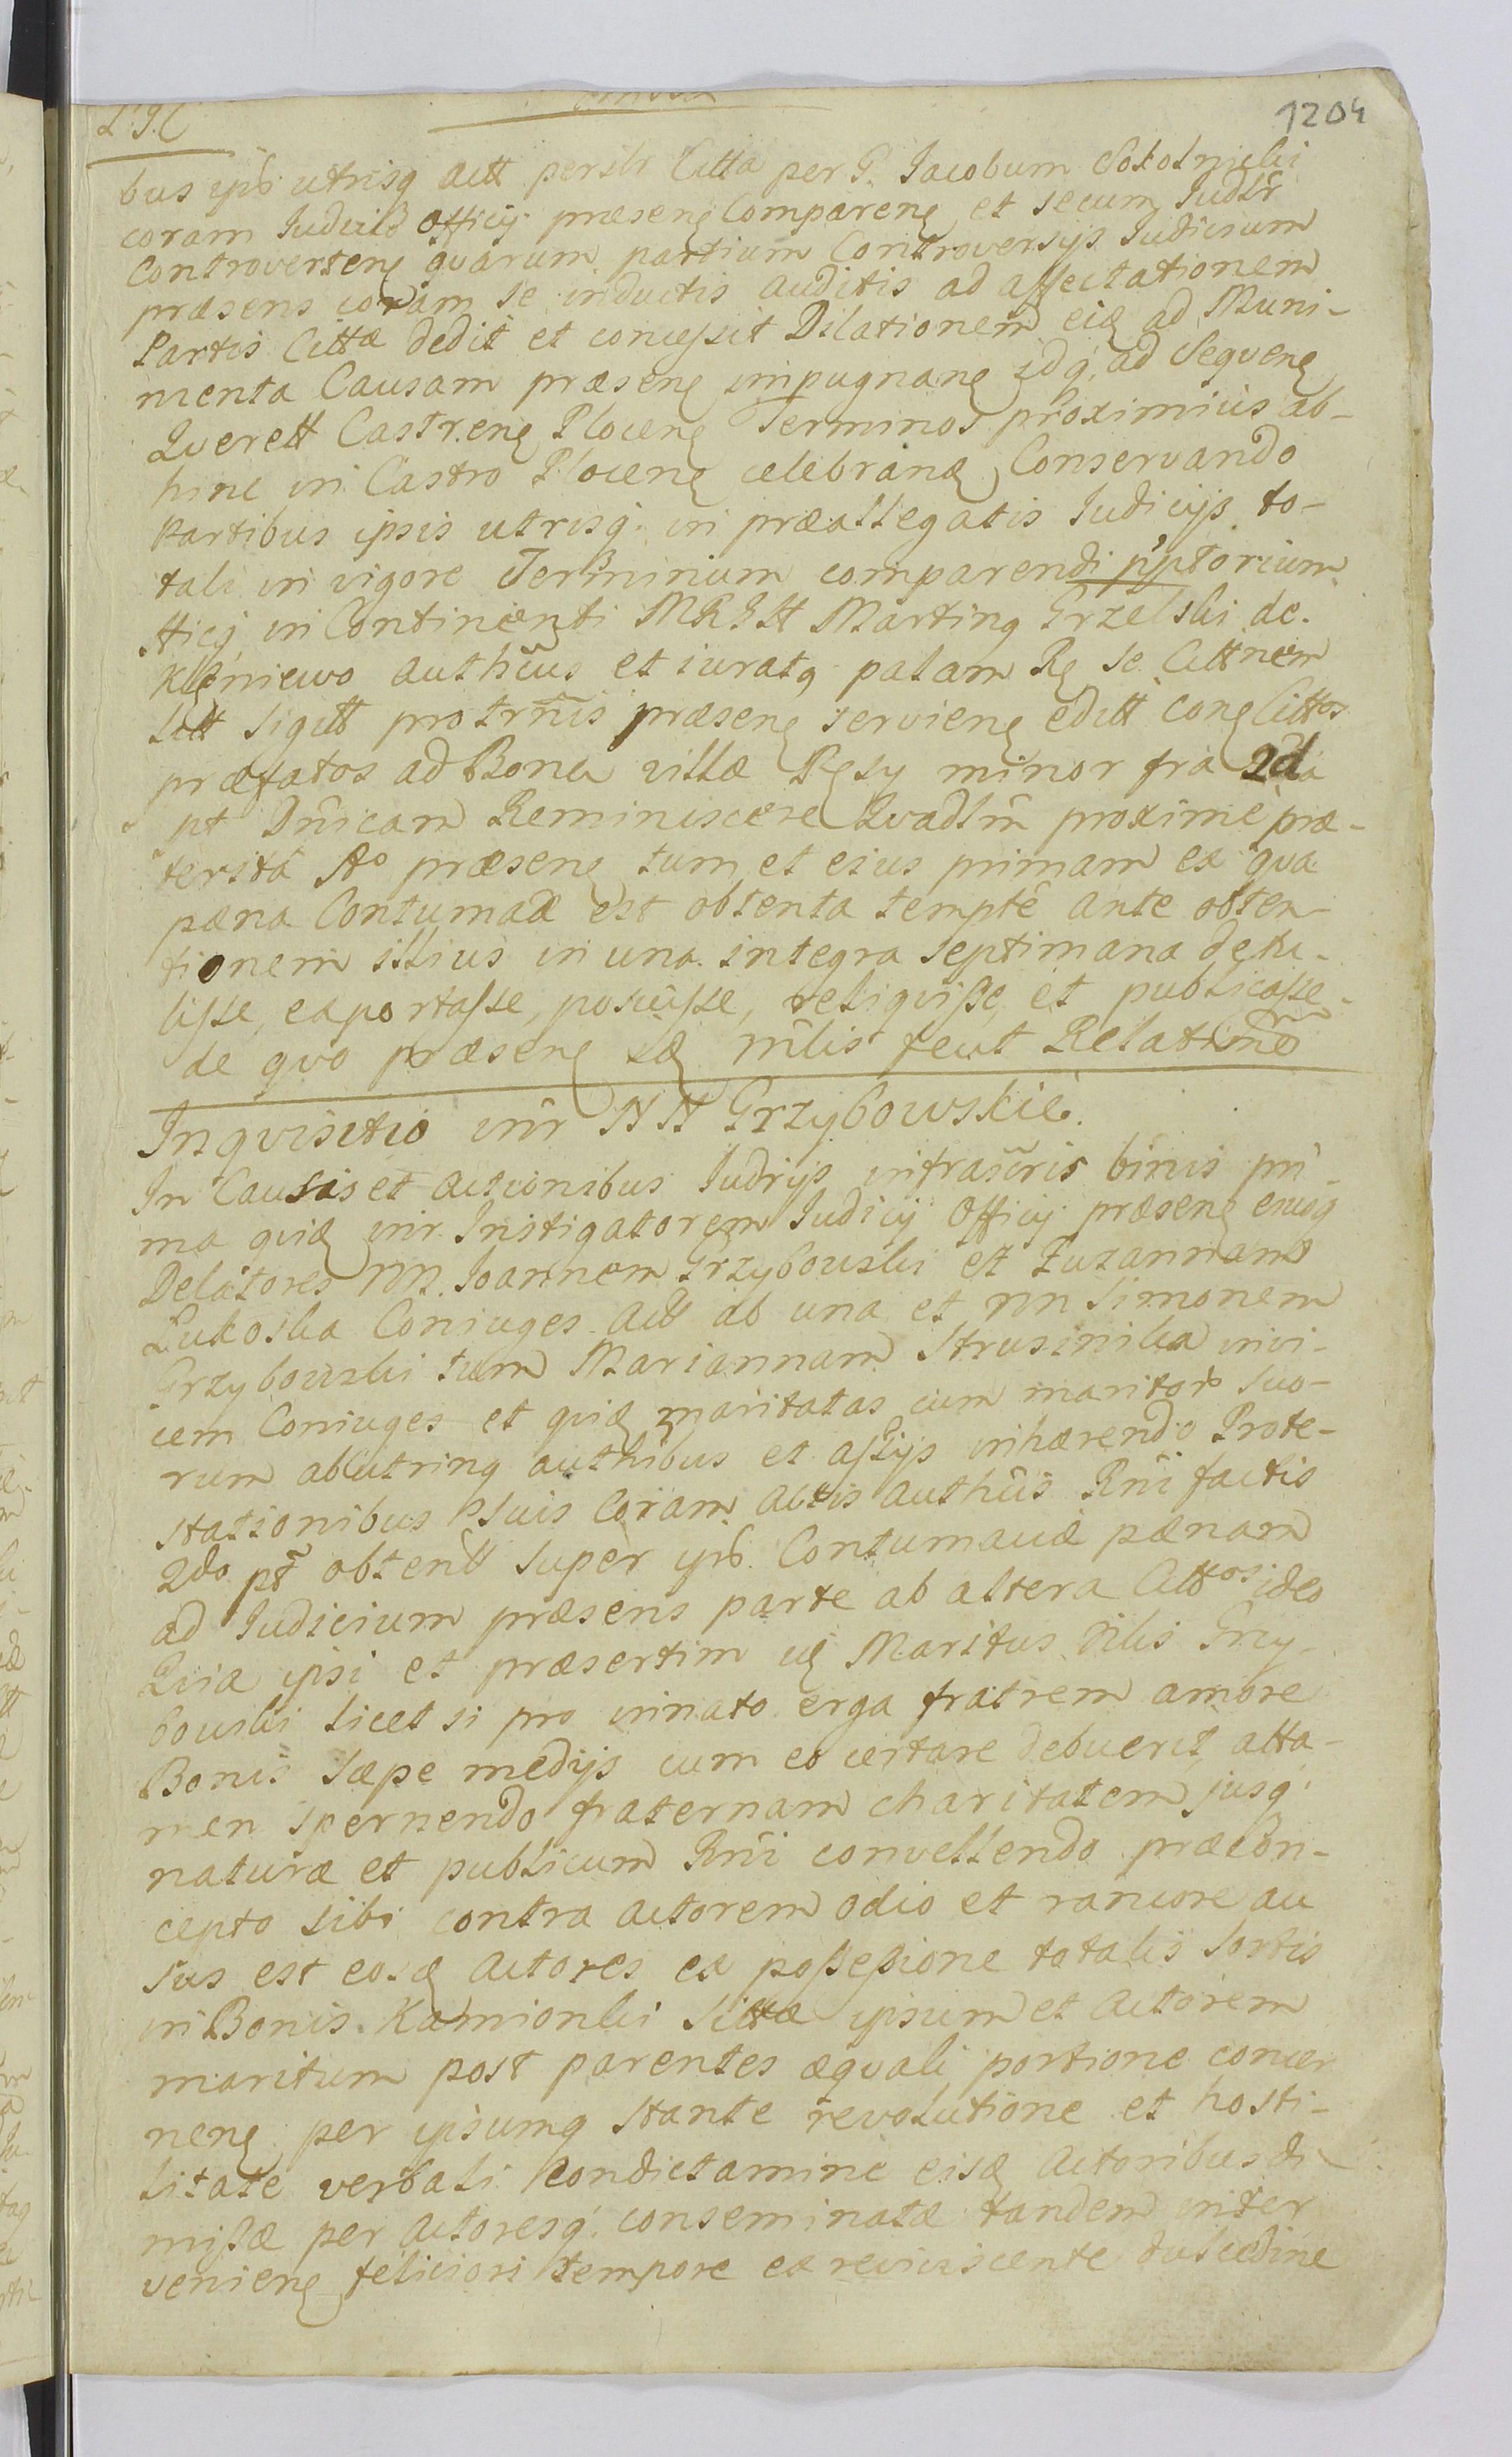 1204
bus ipis utrisq actt persltr Citta per G. Jacobum Sokolnicki
coram Iudicio Officij præsenę Compareneę et secum Iudltr
Controvertenę qvarum partium Controversijs Iudicium
præsens coram se inductis auditis ad affectationem
Partis Cittæ dedit et concessit Dilationem eią ad Muni-
menta Causam præsenę impugnanę idq; ad Seqvenę
Qverett Castrenę Plocenę Terminos proximius ab-
hinc in Castro Plocenę celebraną Conservando
Partibus ipsis utrisq; in præallegatis Iudicijs to-
tali in vigore Terminum comparendi pptorium
Hicq; in Continenti MRGH Marting Grzelski de
Kleniewo authcus et iuratq palam Rę se Cittnem
Litt Sigitt pro trnis præsenę servienę editt conę Cittos
præfatos ad Bona villæ Pęsy minor fra 2da
pt Dnicam Reminiscere Qvadlm proxime præ-
terita Ao præsenę tum et eius primam ex qva
pæna Contumaæ est obtenta tempte ante obten-
tionem illius in una integra septimana detu-
lisse, exportasse, posuisse, reliqvisse et publicasse
de qvo præsenę ią mlis fecit Relatine
Inqvisitio intr NN Grzybowskie.
In Causis et actionibus Iudrijs infrascris binis pri-
ma qvią intr Instigatorem Iudicij Officij præsenę eiusq
Delatores NN. Joannem Grzybowski et Zuzannam
Lukoska Coniuges actt ab una et NN Simonem
Grzybowski tum Mariannam Strusinska invi-
cem Coniuges et qvią maritatas cum maritor suo-
rum ab utrinq authibus et assijs inhærendo Prote-
stationibus Suis Coram actis authcis Rni factis
2do pt obtentt super ipis Contumaciæ pænam
ad Iudicium præsens parte ab altera Cittos ideo
Qvia ipsi et præsertim ią Maritus Nlis Grzy-
bowski licet si pro innato erga fratrem amore
Bonis sæpe medijs cum eo certare debuerit atta-
men spernendo fraternam charitatem jusq;
naturæ et publicum Rni convellendo præcon-
cepto sibi contra actorem odio et rancore au
sus est eosą actores ex possessione totalis Sortis
in Bonis Kamionki Sittæ ipsum et actorem
maritum post parentes æqvali portione concer
nenę per ipsumq stante revolutione et hosti-
litate verbali condictamine eisą Actoribus di-
missæ per actoresq; conseminatæ tandem inter
venienę feliciori tempore ex reviviscente dulcedine